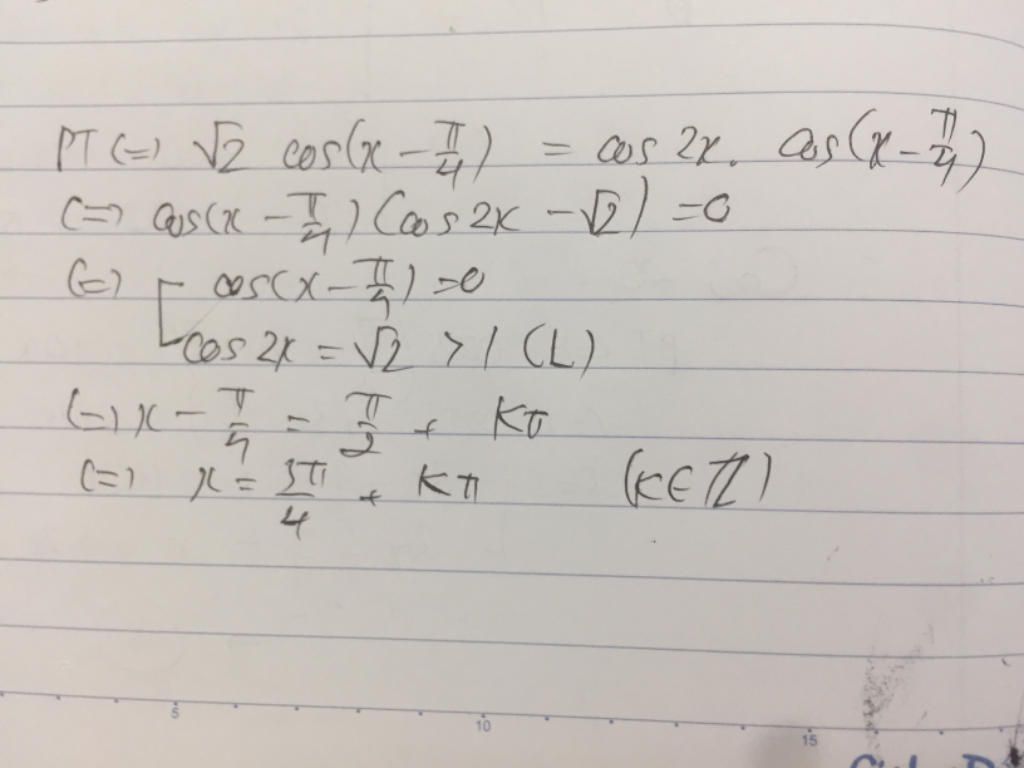 PT (=) √2 cos(x - π/4) = cos 2x. cos(x - π/4)
(=) cos(x - π/4) (cos 2x - √2) = 0
(=) [ cos(x - π/4) = 0
cos 2x = √2 > 1 (L)
(=) x - π/4 = π/2 + Kπ
(=) x = 3π/4 + Kπ (K∈ℤ)
5 10 15